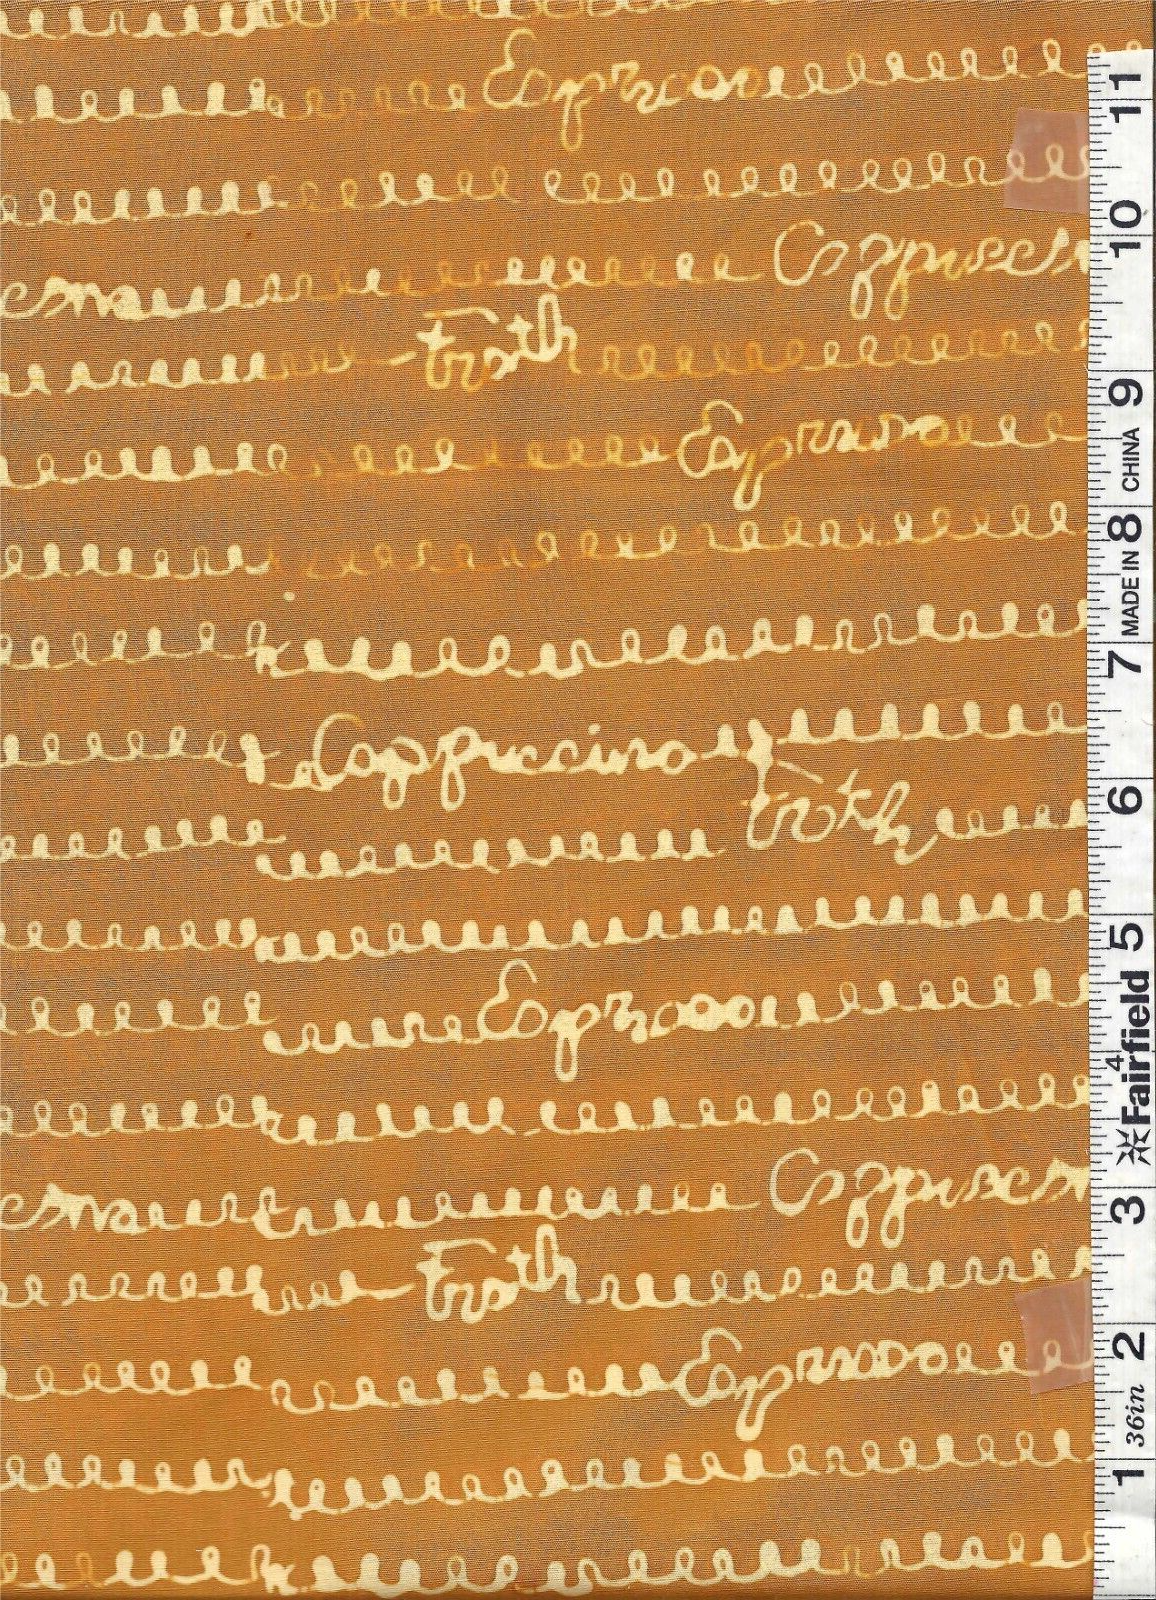 Espresso
Cappuccino
Froth
Espresso
Cappuccino
Froth
Espresso
Cappuccino
Froth
Espresso
11
10
9
8
MADE IN CHINA
7
6
5
4
Fairfield
3
2
36in
1